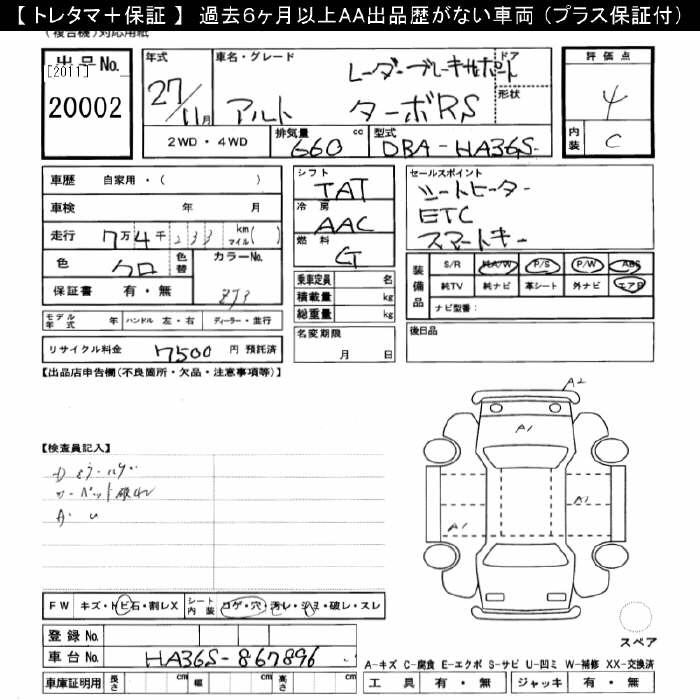 【トレタマ＋保証】 過去６ヶ月以上ＡＡ出品歴がない車両（プラス保証付）
(複合機)対応用紙
出品No. [2011] 20002
年式 27/11月
車名・グレード アルト レーダーブレーキサポート ターボRS
ドア 形状
評価点 4
内装 C
2WD・4WD 排気量 660 cc 型式 DBA-HA36S-
車歴 自家用・( )
車検 年 月
走行 7万4千233 km マイル( )
色 クロ 色替 カラーNo. ZJ3
保証書 有・無
シフト TAT
冷房 AAC
燃料 G
乗車定員 名
積載量 kg
総重量 kg
セールスポイント
シートヒーター
ETC
スマートキー
装備品 S/R 純A/W P/S P/W ABS
純TV 純ナビ 革シート 外ナビ エアB
ナビ型番：
モデル年式 年 ハンドル 左・右 ディーラー・並行
名変期限 月 日
後日品
リサイクル料金 7500 円 預託済
【出品店申告欄(不良箇所・欠品・注意事項等)】
A2
A1
【検査員記入】
A1
A1
FW キズ・トビ石・割レX シート内装 コゲ・穴・汚レ・シミ・破レ・スレ
登録No.
車台No. HA36S-867896
スペア
A-キズ C-腐食 E-エクボ S-サビ U-凹ミ W-補修 XX-交換済
車庫証明用 長さ cm 幅 cm 高さ cm
工具 有・無 ジャッキ 有・無